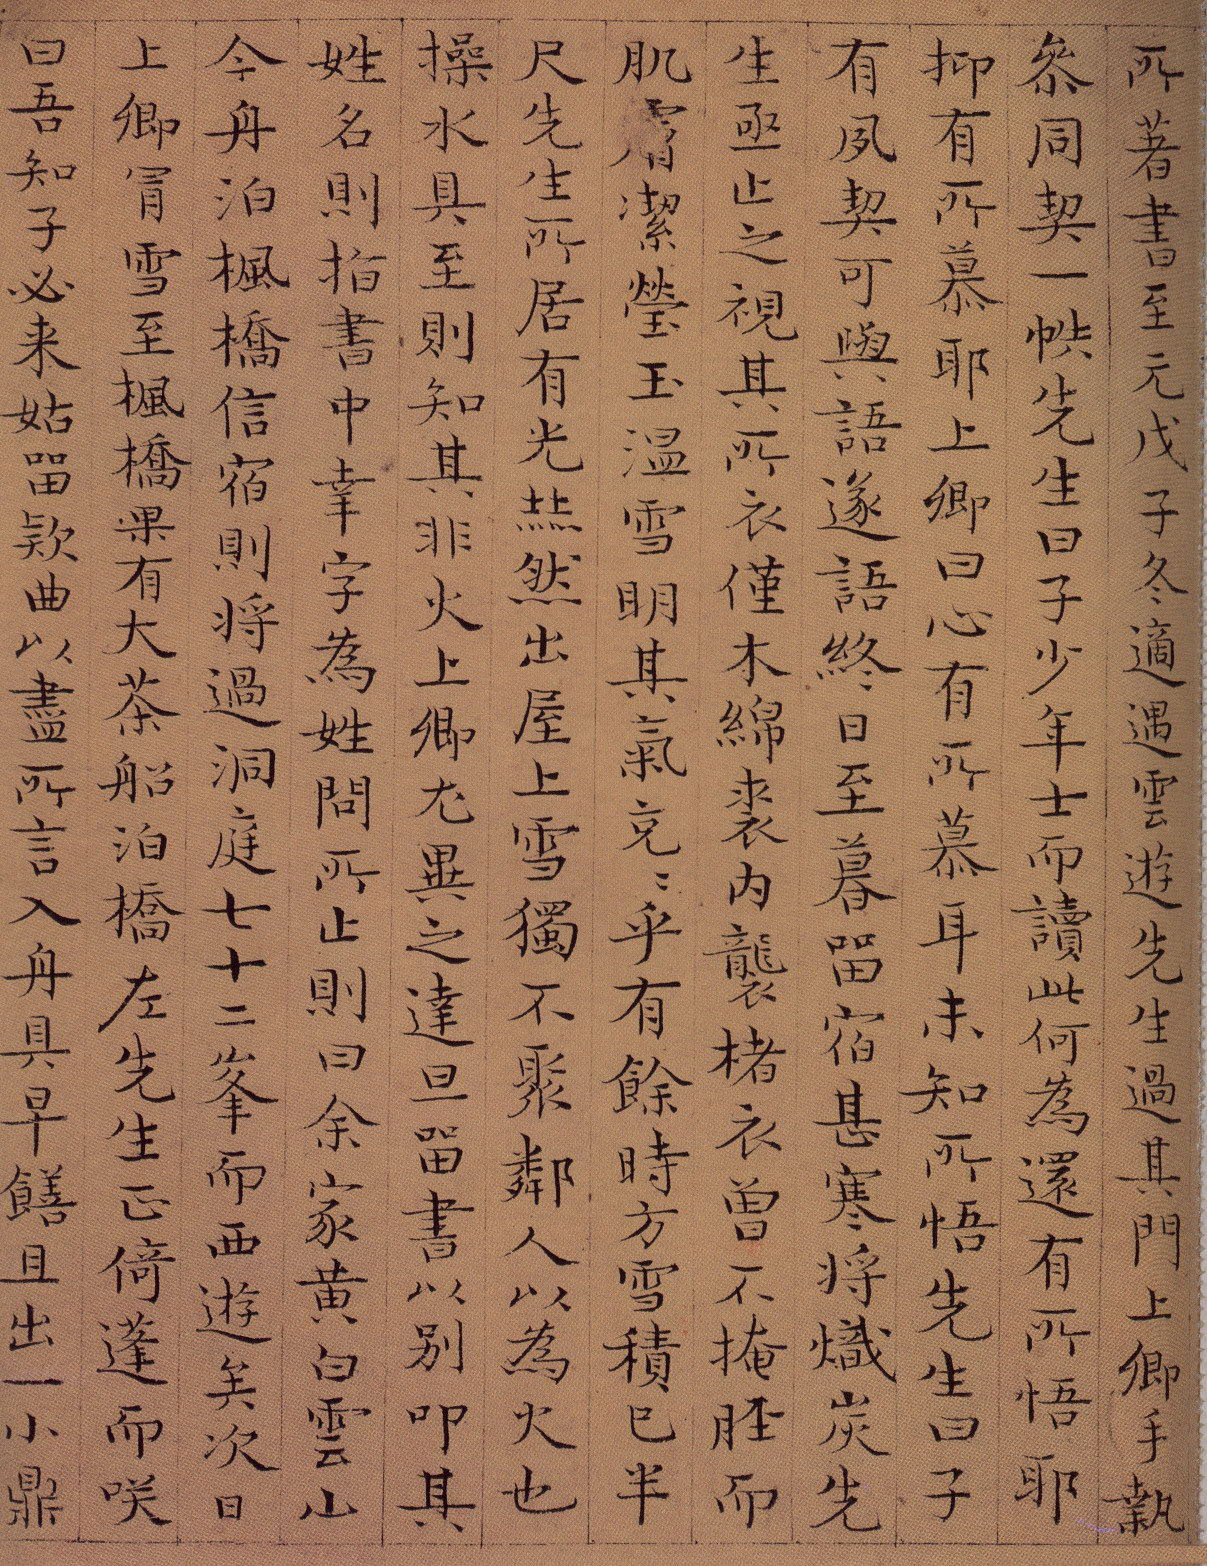 所著書至元戊子冬適遇雲遊先生過其門上卿手執
叅同契一帙先生曰子少年士而讀此何為還有所悟耶
抑有所慕耶上卿曰心有所慕耳未知所悟先生曰子
有夙契可與語遂語終日至暮畱宿甚寒將熾炭先
生亟止之視其所衣僅木綿裘内襲楮衣曾不掩胫而
肌膚潔瑩玉温雪明其氣充〻乎有餘時方雪積已半
尺先生所居有光㷋然出屋上雪獨不聚鄰人以為火也
操水具至則知其非火上卿尤異之達旦畱書以别叩其
姓名則指書中幸字為姓問所止則曰余家黄白雲山
今舟泊楓橋信宿則将過洞庭七十二峯而西遊矣次日
上卿冐雪至楓橋果有大茶船泊橋左先生正倚蓬而咲
曰吾知子必来姑畱欵曲以盡所言入舟具早饍且出一小鼎